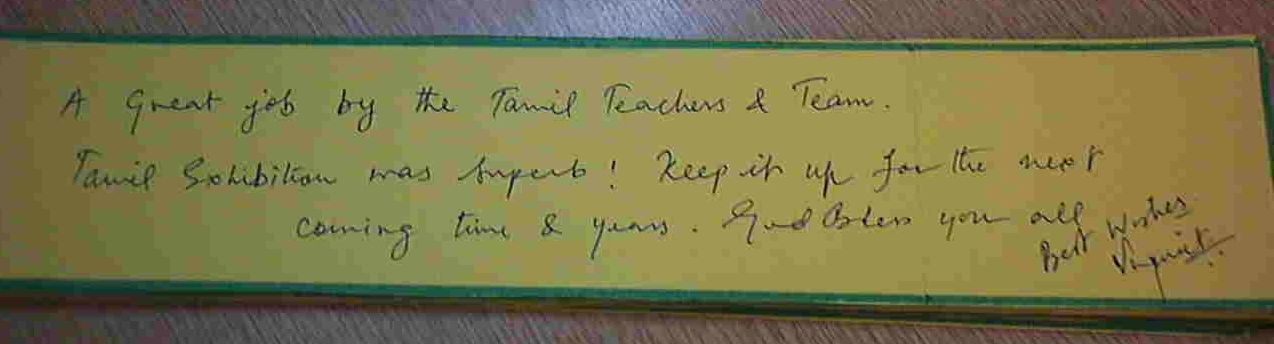 A Great job by the Tamil Teachers & Team.
Tamil Exhibition was superb! Keep it up for the next
coming time & years. God Bless you all
Best Wishes